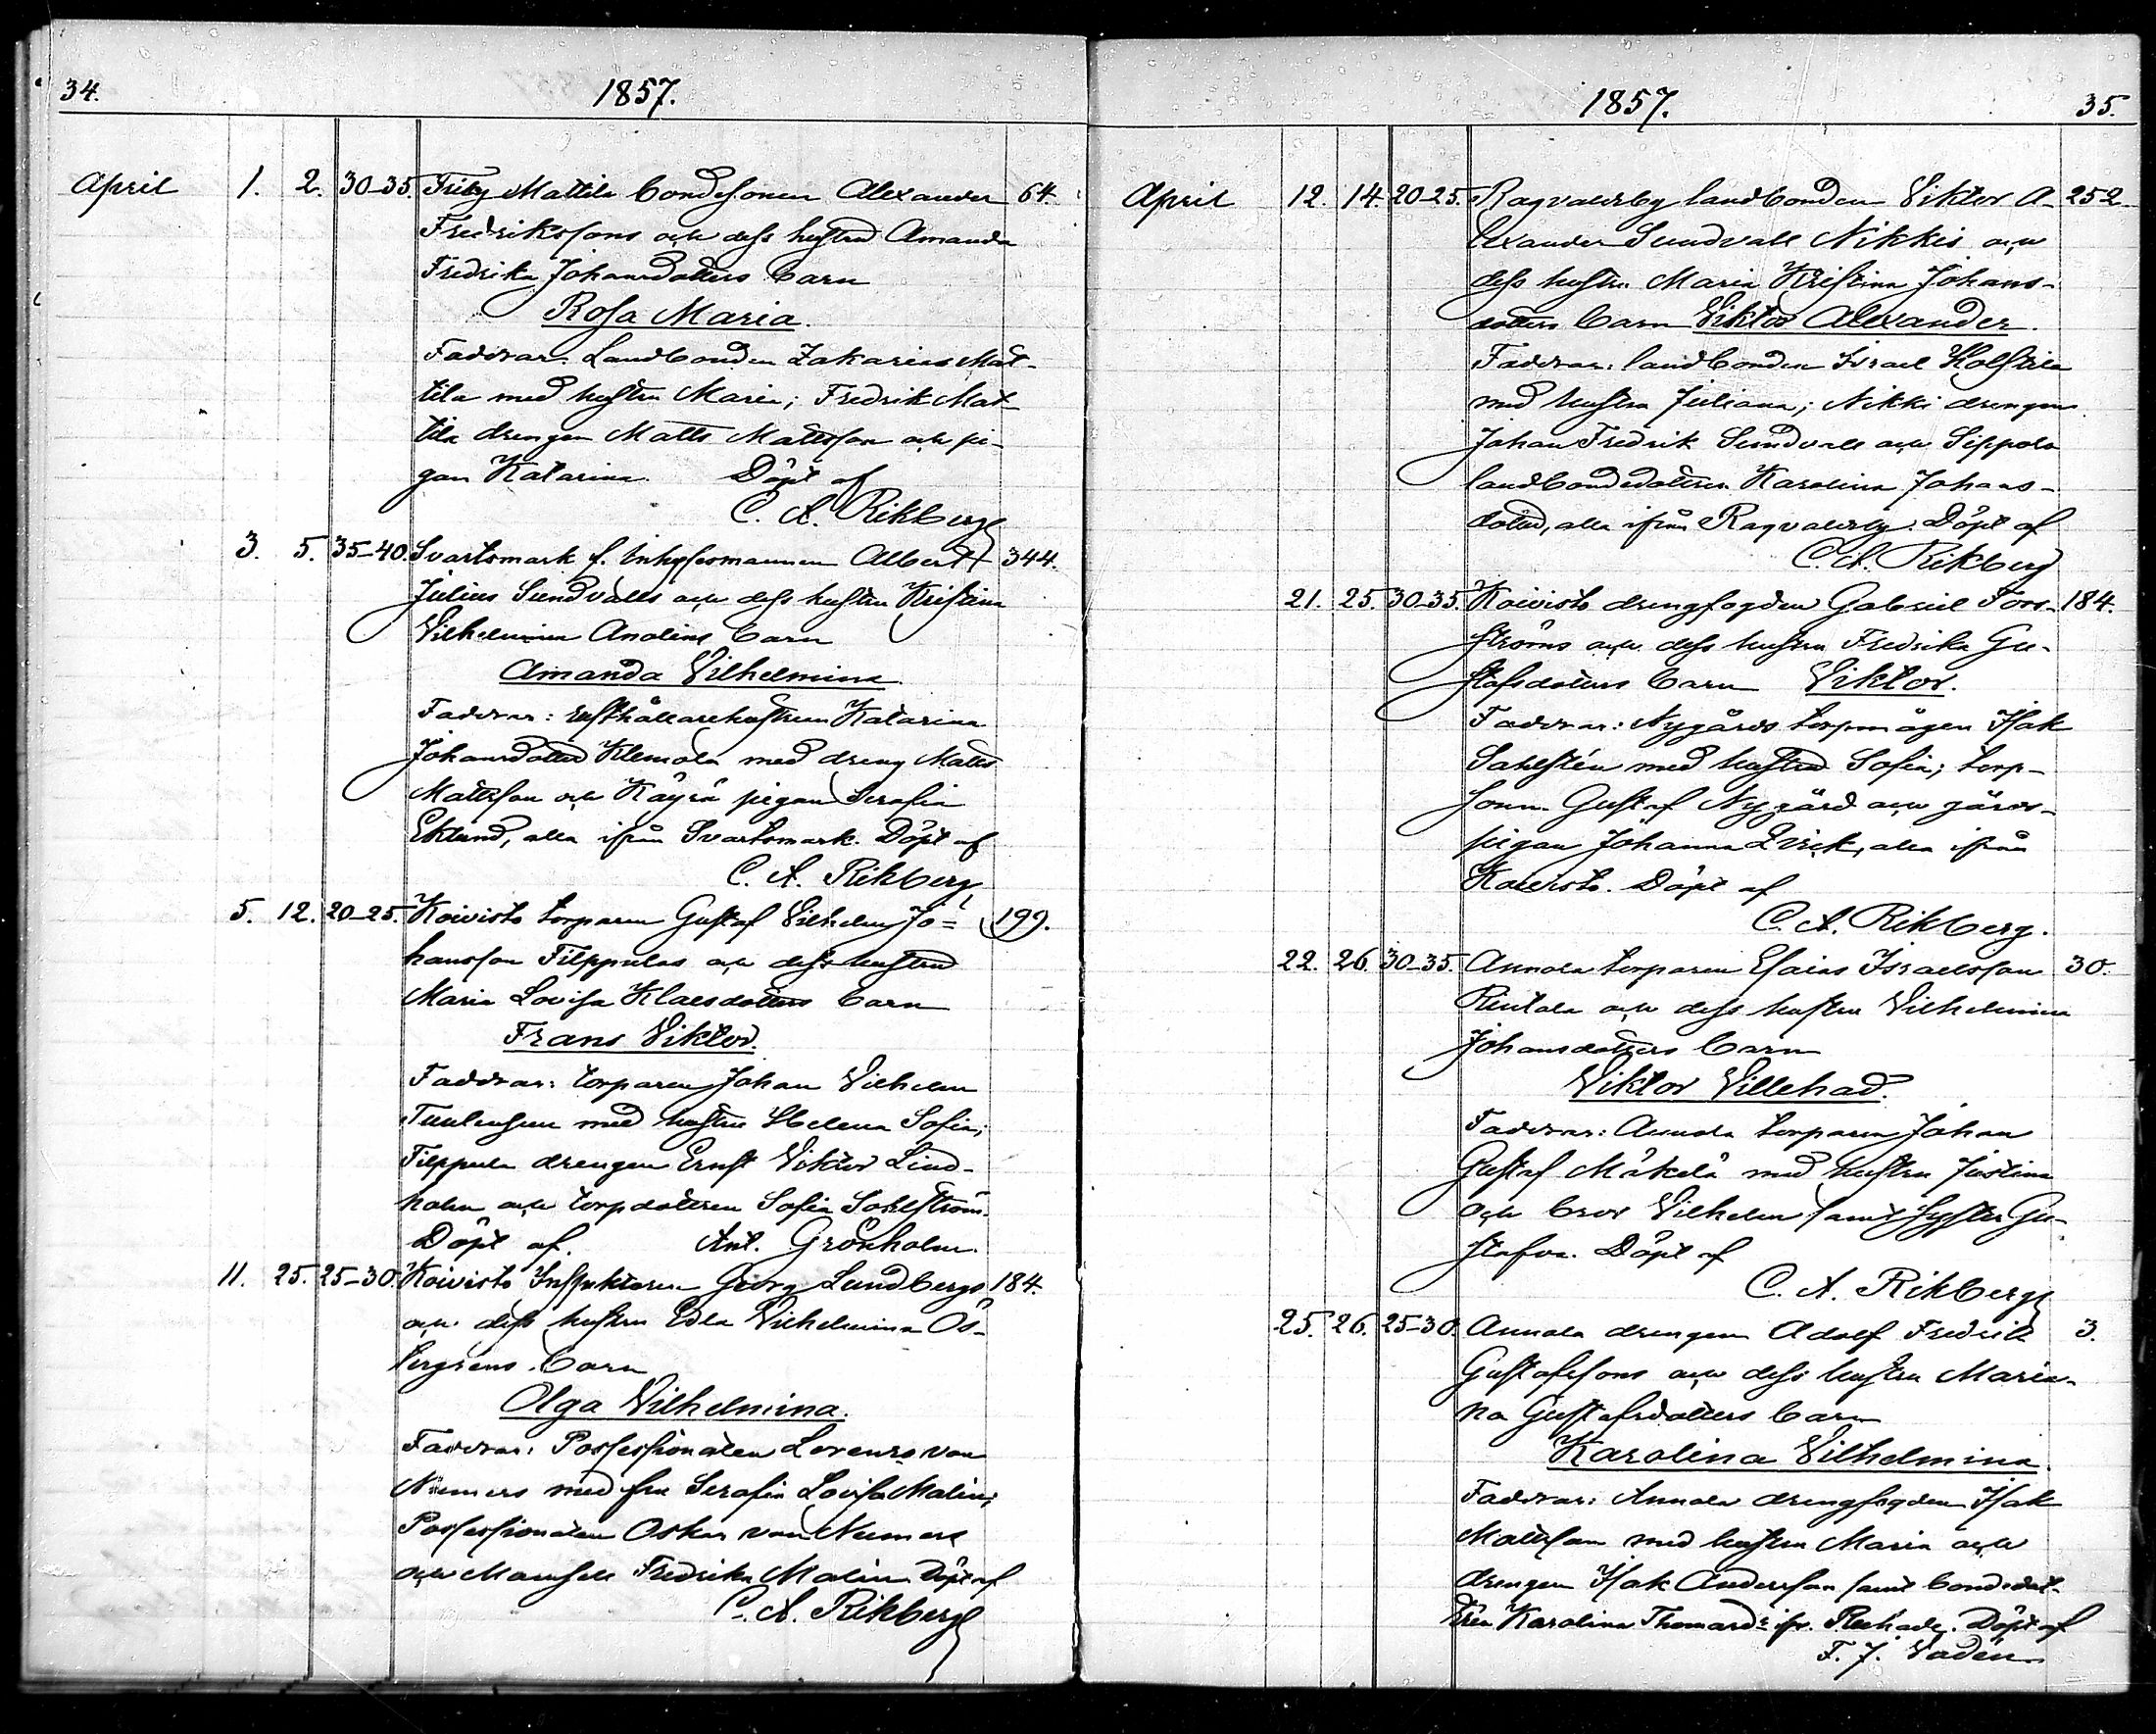 34.
1857.
April 1. 2. 30-35. Mattila bondesonen Alexander 64.
Fredrikssons och dess hustru Amanda
Fredrika Johansdotters barn
Rosa Maria.
Faddrar: Landbonden Zakarias Mat-
tila med hustru Maria; Fredrik Mat-
tila drengen Matts Mattsson och pi-
gan Katarina. Döpt af
C. A. Rikberg
3. 5. 35-40. Svartsmark f. Inhysesmannen Albert 344.
Julius Sundvalls och dess hustru Kristina
Vilhelmina barn
Amanda Vilhelmina
Faddrar: rusthållarehustrun Katarina
Johansdotter Klemola med dreng Matts
Mattsson och Käyrä pigan Serafia
Eklund, alla ifrån Svartsmark. Döpt af
C. A. Rikberg
5. 12. 20-25. Koivisto torparen Gustaf Vilhelm Jo= 199.
hansson Filppulas och dess hustru
Maria Lovisa Klaesdotters barn
Frans Viktor.
Faddrar: torparen Johan Vilhelm
med hustru Helena Sofia;
Filppula drengen Ernst Viktor Lind-
holm och torpdottren Sofia Sahlström.
Döpt af. Ant. Grönholm.
11. 25. 25-30. Koivisto Inspektoren Georg Lundbergs 184.
och dess hustru Edla Vilhelmina Ös-
tergrens barn
Olga Vilhelmina.
Faddrar: Possessionaten Lorenzo von
Numers med fru Serafia Lovisa Malin;
Possessionaten Oskar von Numers
och Mamsell Fredrika Malin. Döpt af
C. A. Rikberg
1857.
35.
April 12. 14. 20-25. Ragvaldsby landbonden Viktor A- 252
lexander Sundvall Nikkis och
dess hustru Maria Kristina Johans-
dotters barn Viktor Alexander.
Faddrar: landbonden Israel Kolstila
med hustru Juliana; Nikki drengen
Johan Fredrik Sundvall och Sippola
landbondedottren Karolina Johans-
dotter, alla ifrån Ragvaldsby. Döpt af
C. A. Rikberg
21. 25. 30-35. Koivisto drengfogden Gabriel Fors- 184.
ströms och dess hustru Fredrika Gu-
stafsdotters barn Viktor.
Faddrar: Nygårds torpmågen Isak
Sahlstén med hustru Sofia; torp-
sonen Gustaf Nygård och gårds-
pigan Johanna alla ifrån
Koivisto. Döpt af
C. A. Rikberg.
22. 26. 30-35. Annala torparen Esaias Israelsson 30.
Rintala och dess hustru Vilhelmina
Johansdotters barn
Viktor Villehad.
Faddrar: Annala torparen Johan
Gustaf Mäkelä med hustru Justina
och bror Vilhelm samt syster Gu-
stafva. Döpt af
C. A. Rikberg
25. 26. 25-30. Annala drengen Adolf Fredrik 3.
Gustafssons och dess hustru Maria-
na Gustafsdotters barn
Karolina Vilhelmina.
Faddrar: Annala drengfogden Isak
Mattsson med hustru Maria och
drengen Isak Andersson samt bondedot-
tren Karolina Thomasd:r ifr. Döpt af
F. J. Vadén